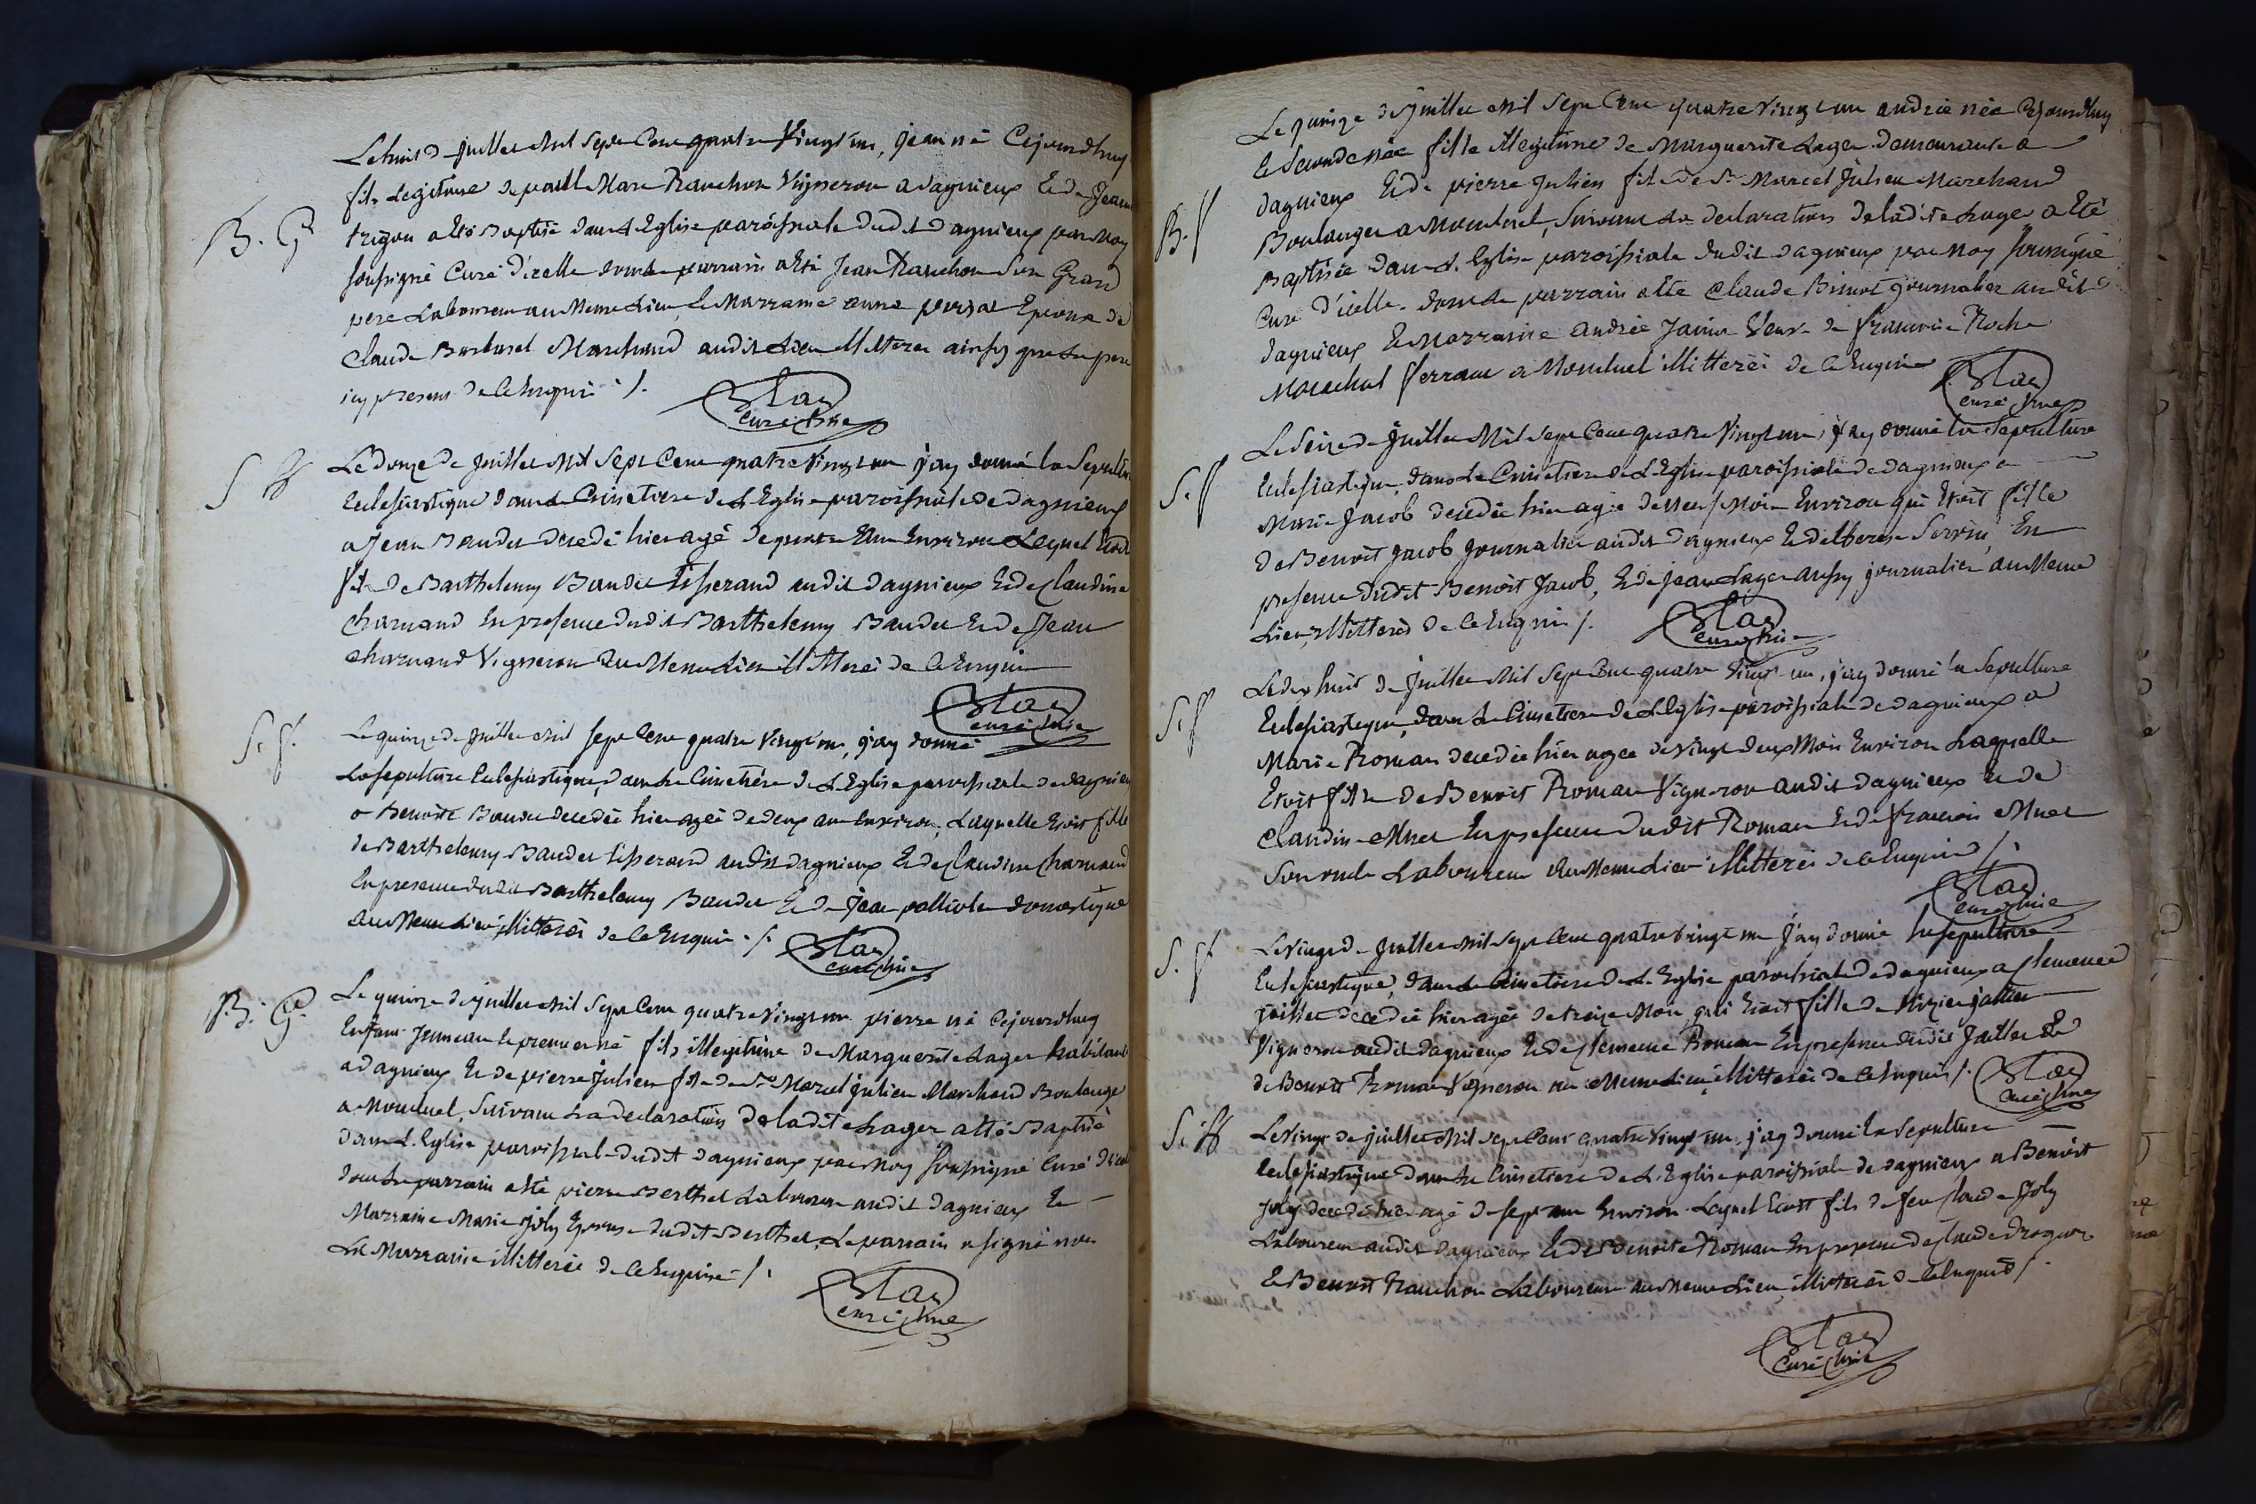 Le huit de juillet mil sept cent quatre vingt un, jean né Cejourdhuy
fils Legitime de paul Marc Tranchon Vigneron a dagnieux Et de Jeanne
trigon a Eté Baptisé dans L'Eglise paroissiale dudit dagnieux par Moy
B. G
soussigné Curé d'icelle dont le parrain a Eté Jean Tranchon Son Grand
pere Laboureur au Meme Lieu, la Marraine anne Epouse de
Claude Marchand audit Lieu illiterée ainsy que le pere
icy present de ce Enquis /.
curé
S ff Le douze de juillet Mil Sept Cent quatre Vingt un j'ay donné la Sepulture
Eclesiastique dans le Cimetiere de L'Eglise paroissiale de dagnieux
a Jean Baudet decedé hier agé de quatre Ans Environ Lequel Etoit
fils de Barthelemy Baudet tisserand audit dagnieux Et de Claudine
Charnand En presence dudit Barthelemy Baudet Et de Jean
Charnand Vigneron Au Meme Lieu illiterés de ce Enquis
curé
S. f. Le quinze de juillet mil sept Cent quatre Vingt un, j'ay donné
La sepulture Eclesiastique, dans le Cimetiére de L'Eglise paroissiale de dagnieux
a Benoite Baudet decedée hier agée de deux ans Environ, Laquelle Etoit fille
de Barthelemy Baudet tisserand audit dagnieux Et de Claudine Charnand
En presence dudit Barthelemy Baudet Et de Jean domestique
au Meme Lieu illiterés de ce Enquis ./.
curé
B. G. Le quinze de juillet mil Sept Cent quatre Vingt un pierre né Cejourdhuy
Enfant Jumeau le premier né fils illegitime de Marguerite Lager habitant
a dagnieux Et de pierre Julien fils de Sr Marcel julien Marchand Boulanger
a Montluel, Suivant La declaration de ladite Lager a Eté Baptisé
dans L'Eglise paroissiale dudit dagnieux par Moy soussigné Curé d'icelle
dont le parrain a Eté pierre Berthet Laboureur audit dagnieux Et
Marraine Marie joly Epouse dudit Berthet, Le parrain a signé non
La Marraine illiterée de ce Enquise /.
curé
Le quinze de juillet Mil Sept Cent quatre Vingt un andrée née Cejourdhuy
la seconde née fille illegitime de Marguerite Lager demeurante a
dagnieux Et de pierre Julien fils de Sr Marcel Julien Marchand
B. f Boulanger a Montluel, Suivant La declaration de ladite Lager a Eté
Baptisée dans L'Eglise paroissiale dudit dagnieux par Moy soussigné
Curé d'icelle dont le parrain a Eté Claude journalier audit
dagnieux Et Marraine andrée Janin Veuve de francois Roche
Marechal ferrant a Montluel illiterés de ce Enquis
curé
Le Seize de juillet Mil Sept Cent quatre Vingt un, j'ay donné la sepulture
S. f Eclesiastique, dans Le Cimetiere de L'Eglise paroissiale de dagnieux a
Marie Jacob decedée hier agée de neuf Mois Environ qui Etoit fille
de Benoit jacob journalier audit dagnieux Et de therese En
presence dudit Benoit Jacob, Et de jean Lager aussy journalier au Meme
Lieu, illiterés de ce Enquis /.
curé
Le dix huit de juillet Mil Sept Cent quatre Vingt un, j'ay donné la Sepulture
S. f Eclesiastique, dans le Cimetiere de L'Eglise paroissiale de dagnieux a
Marie Roman decedée hier agée de vingt deux Mois Environ Laquelle
Etoit fille de Benoit Roman Vigneron audit dagnieux Et de
Claudine En presence dudit Roman Et de francois
Son oncle Laboureur Au Meme Lieu illiterés de ce Enquis /.
curé
S. f Le Vingt de juillet Mil Sept Cent quatre vingt un j'ay donné la sepulture
Eclesiastique, dans le Cimetiere de L'Eglise paroissiale de dagnieux a Clemence
decedée hier agée de treize Mois qui Etoit fille de
Vigneron audit dagnieux Et de Clemence Roman En presence dudit Et
de Benoit Roman Vigneron au Meme Lieu illiterés de ce Enquis /.
curé
S. ff Le Vingt de juillet Mil Sept Cent quatre Vingt un, j'ay donné la Sepulture
Eclesiastique dans le Cimetiere de L'Eglise paroissiale de dagnieux a Benoit
joly decedé hier agé de sept ans Environ Lequel Etoit fils de feu Claude Joly
Laboureur audit dagnieux Et de Benoite Roman En presence de Claude
Et Benoit Tranchon Laboureurs au Meme Lieu, illiterés de ce Enquis /.
curé